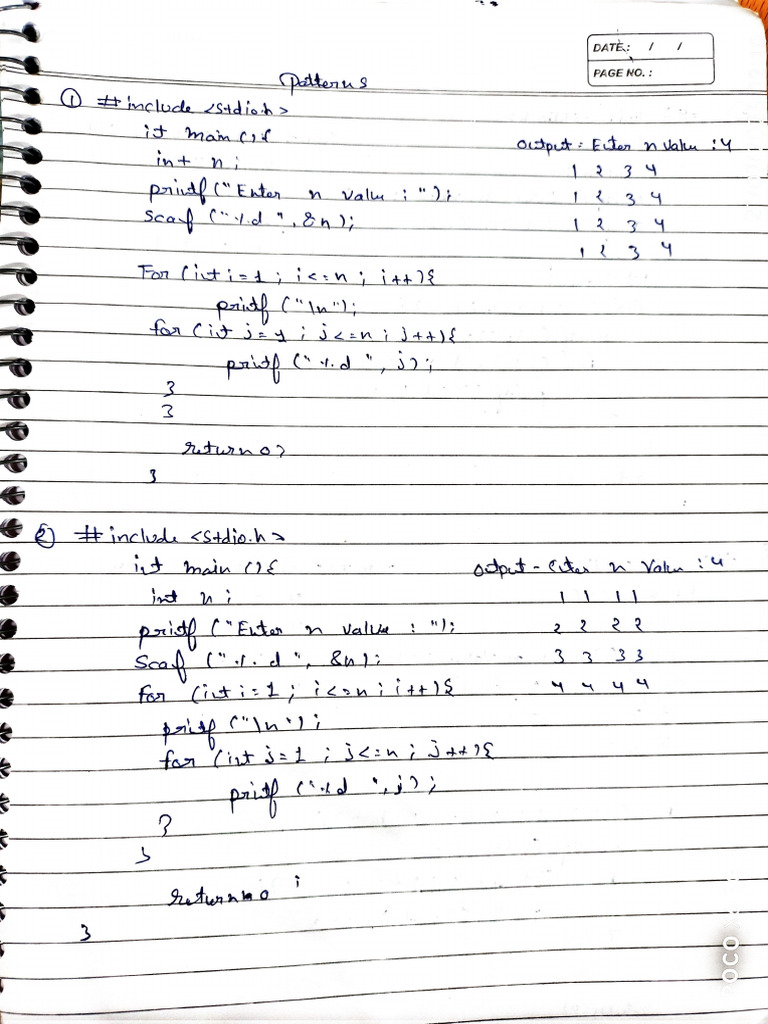 DATE: / /
PAGE NO. :
Patterns
① #include <stdio.h>
it main () {
int n ;
printf ("Enter n value : ");
Scaf ("%d ", &n);
output = Enter n value : 4
1 2 3 4
1 2 3 4
1 2 3 4
1 2 3 4
For (int i = 1 ; i <= n ; i++) {
printf ("\n");
for (int j = 1 ; j <= n ; j++) {
printf ("%d ", j) ;
}
}
return 0 ;
}
② #include <stdio.h>
int main () {
int n ;
printf ("Enter n value : ");
Scaf ("%d ", &n);
for (int i = 1 ; i <= n ; i++) {
output - Enter n value : 4
1 1 1 1
2 2 2 2
3 3 3 3
4 4 4 4
printf ("\n") ;
for (int j = 1 ; j <= n ; j++) {
printf ("%d ", j) ;
}
}
return 0 ;
}
POCO